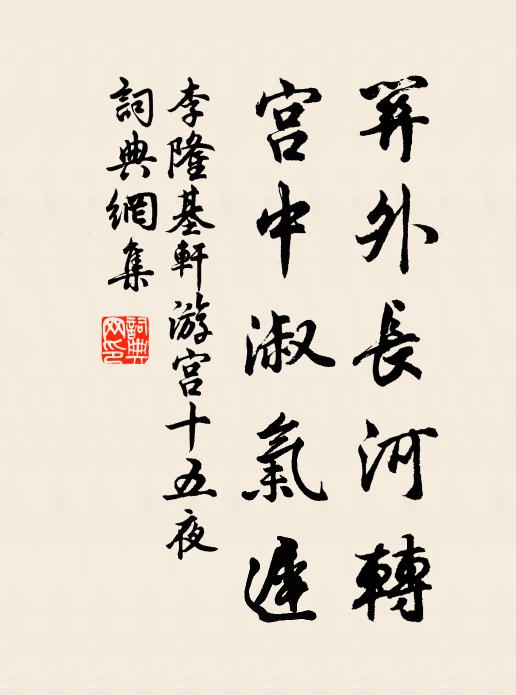 關外長河轉
宮中淑氣遲
李隆基軒游宮十五夜
詞典網集
詞典网印